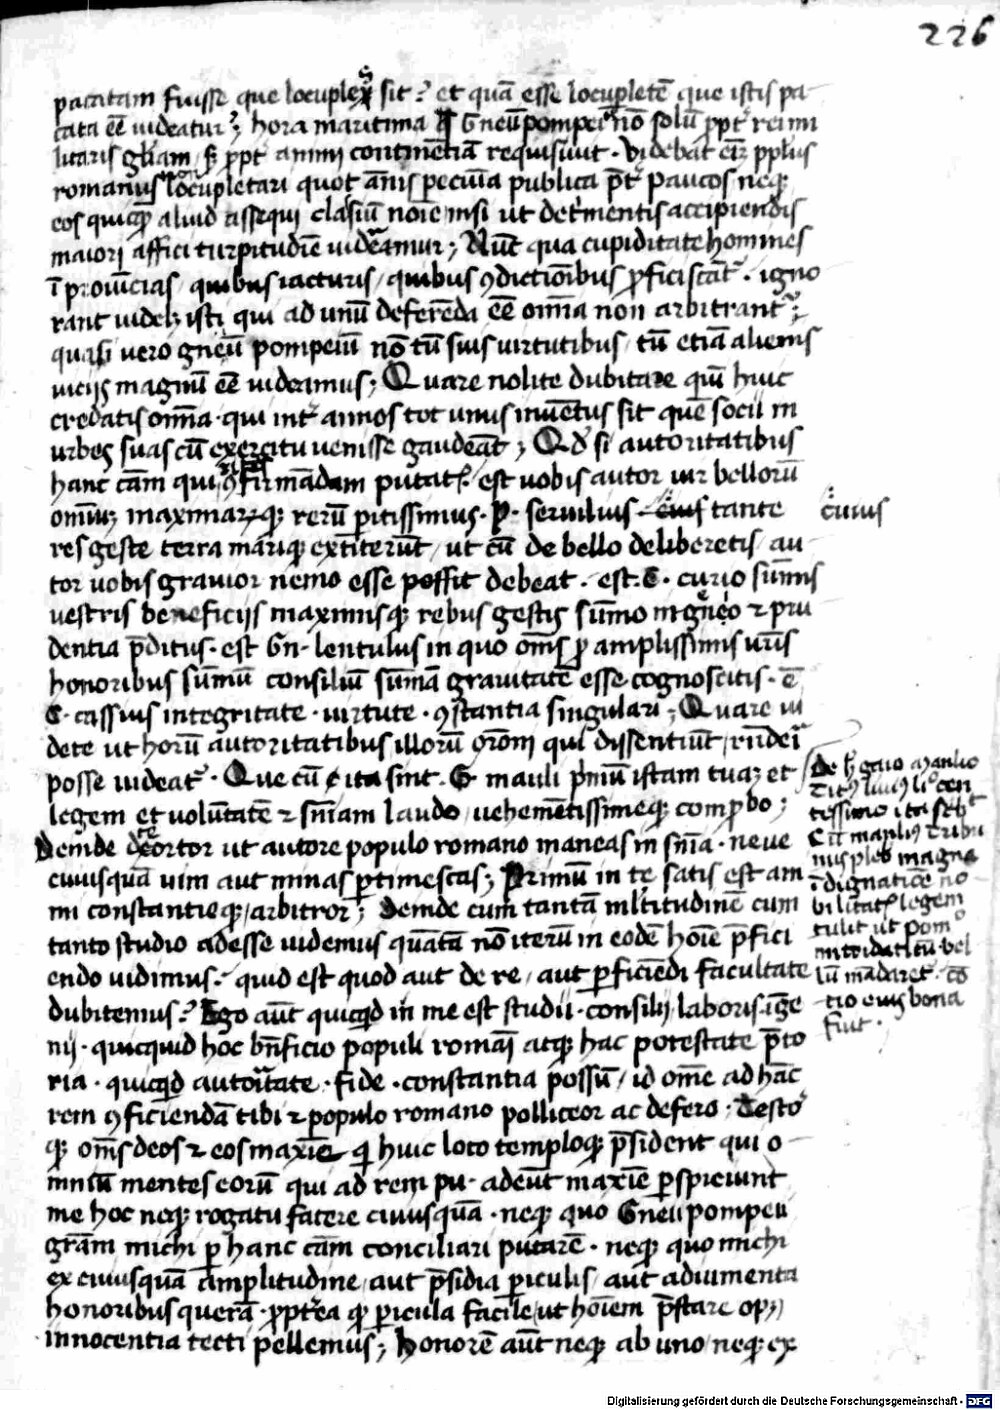 226
pacatam fuisse que locuplex sit? et quā esse locupletē que istis pa-
cata eē uideatur? hora maritima Gneū pompeiū nō solū ꝓpt rei mi
litaris glīam, ſꝫ ꝓpt animi continētiā requisiuit. Videbat eīꝫ ppl'us
romanus locupletari quot ānis pecuīa publica pt paucos neqꝫ
eos quicꝗ aliud assequi clasiū noīe nisi ut detmentis accipiendis
maiori affici turpitudīe uideamur; Nūc qua cupiditate homines
ī prouīcias, quibus iacturis, quibus ꝯdictiōibus ꝓficiscāt. igno
rant uidelꝫ isti qui ad unū deferēda eē omīa non arbitrant;
quasi uero gneū pompeiū nō tū suis uirtutibus, tū etiā alienis
uicijs magnū eē uideamus; Quare nolite dubitare quī huic
credatis omīa. qui int annos tot unus inuētus sit quē socii in
urbes suas cū exercitu uenisse gaudeāt; Qd si autoritatibus
hanc cām ꝯfirmādam putat. est uobis autor uir bellorū
omiūꝫ maximarꝫqꝫ rerū pitissimus. P. seruilius. cuius tante
cuius
res geste terra mariqꝫ extiterūt, ut cū de bello deliberetis, au
tor uobis grauior nemo esse possit debeat. est. C. curio sūmis
uestris beneficijs maximisqꝫ rebus gestis sūmo ingēio ⁊ pru
dentia pditus. est Gn. lentulus in quo oms ꝓ amplissimis uris
honoribus sūmū consiliū sūmā grauitatē esse cognoscitis. ē
C. cassius integritate. uirtute. ꝯstantia singulari; Quare ui
dete ut horū autoritatibus illorū orōni qui dissentiūt, rūderi
posse uideat. Que cū ita sint. G. mauli pmū istam tuaꝫ et
legem et volūtatē ⁊ snīam laudo, uehemētissimeqꝫ compbo;
Deinde te ortor ut autore populo romano maneas in snīa. neue
cuiusquā uim aut minas ptimescas; Primū in te satis est ani
mi constantieqꝫ, arbitror; Deinde cum tantā mltitudinē cum
tanto studio adesse uidemus quātā nō iterū in eodē hoīe pfici
endo uidimus. quid est quod aut de re, aut pficiēdi facultate
dubitemus? Ego aūt quicqd in me est studii. consilij, laboris. īge
nij. quicquid hoc bnficio populi romāi atqꝫ hac potestate pto
ria. quicqd autoitate. fide. constantia possū, id ome ad hāc
rem ꝯficiendā tibi ⁊ populo romano polliceor ac defero; Testo
qꝫ oms deos ⁊ eos maxīe qi huic loco temploqꝫ psident qui o-
mniū mentes eorū qui ad rem pu. adeūt maxīe pspiciunt
me hoc neqꝫ rogatu facere cuiusquā. neqꝫ quo Gneu pompeii
grām michi p hanc cām conciliari putarē. neqꝫ quo michi
ex cuiusquā amplitudine, aut psidia piculis, aut adiumenta
honoribus querā. ꝓptea qꝫ picula facile, ut hoīem pstare opꝫ
innocentia tecti pellemus; Honorē aūt neqꝫ ab uno, neqꝫ ex
De h gaio manlio
Titꝰ liuiꝰ liº cen
tessimo ita scbt
Cū manliꝰ tribu
nus pleb magna
īdignatiōe no
bilitatꝭ legem
tulit ut pom
mitridaticū bel
lū mādaret. cō
tio eius bona
fuit.
Digitalisierung gefördert durch die Deutsche Forschungsgemeinschaft - DFG